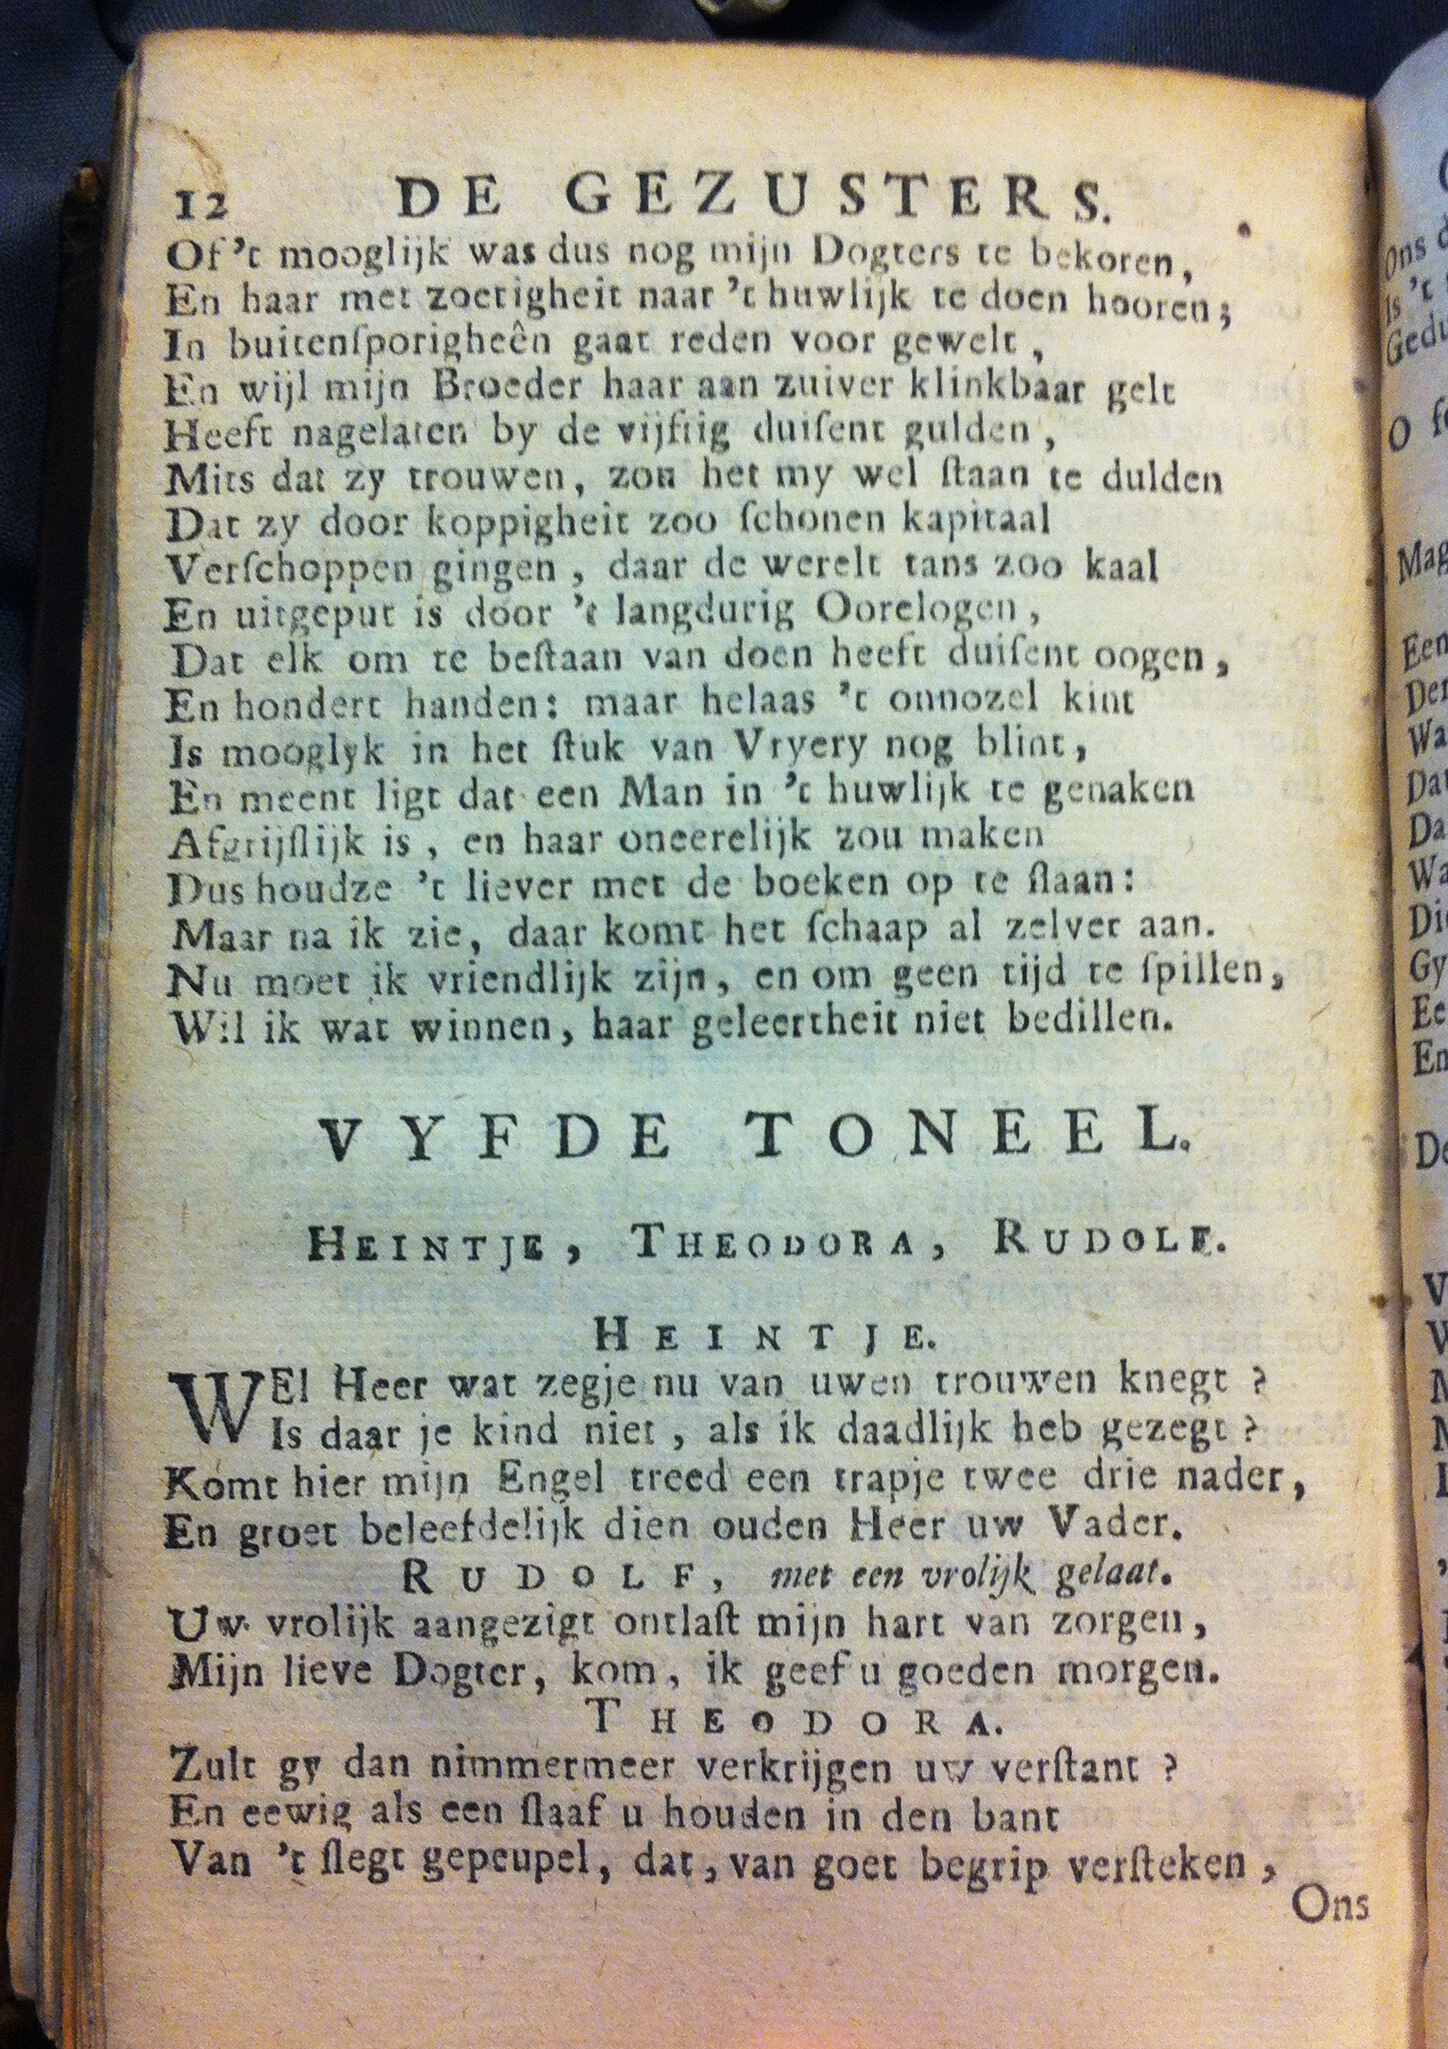 12 DE GEZUSTERS.
Of 't mooglijk was dus nog mijn Dogters te bekoren,
En haar met zoetigheit naar 't huwlijk te doen hooren;
In buitenſporigheên gaat reden voor gewelt,
En wijl mijn Broeder haar aan zuiver klinkbaar gelt
Heeft nagelaten by de vijftig duiſent gulden,
Mits dat zy trouwen, zou het my wel ſtaan te dulden
Dat zy door koppigheit zoo ſchonen kapitaal
Verſchoppen gingen, daar de werelt tans zoo kaal
En uitgeput is door 't langdurig Oorelogen,
Dat elk om te beſtaan van doen heeft duiſent oogen,
En hondert handen: maar helaas 't onnozel kint
Is mooglyk in het ſtuk van Vryery nog blint,
En meent ligt dat een Man in 't huwlijk te genaken
Afgrijſlijk is, en haar oneerelijk zou maken
Dus houdze 't liever met de boeken op te ſlaan:
Maar na ik zie, daar komt het ſchaap al zelver aan.
Nu moet ik vriendlijk zijn, en om geen tijd te ſpillen,
Wil ik wat winnen, haar geleertheit niet bedillen.
VYFDE TONEEL.
HEINTJE, THEODORA, RUDOLF.
HEINTJE.
WEl Heer wat zegje nu van uwen trouwen knegt?
Is daar je kind niet, als ik daadlijk heb gezegt?
Komt hier mijn Engel treed een trapje twee drie nader,
En groet beleefdelijk dien ouden Heer uw Vader.
RUDOLF, met een vrolijk gelaat.
Uw vrolijk aangezigt ontlaſt mijn hart van zorgen,
Mijn lieve Dogter, kom, ik geef u goeden morgen.
THEODORA.
Zult gy dan nimmermeer verkrijgen uw verſtant?
En eewig als een ſlaaf u houden in den bant
Van 't ſlegt gepeupel, dat, van goet begrip verſteken,
Ons